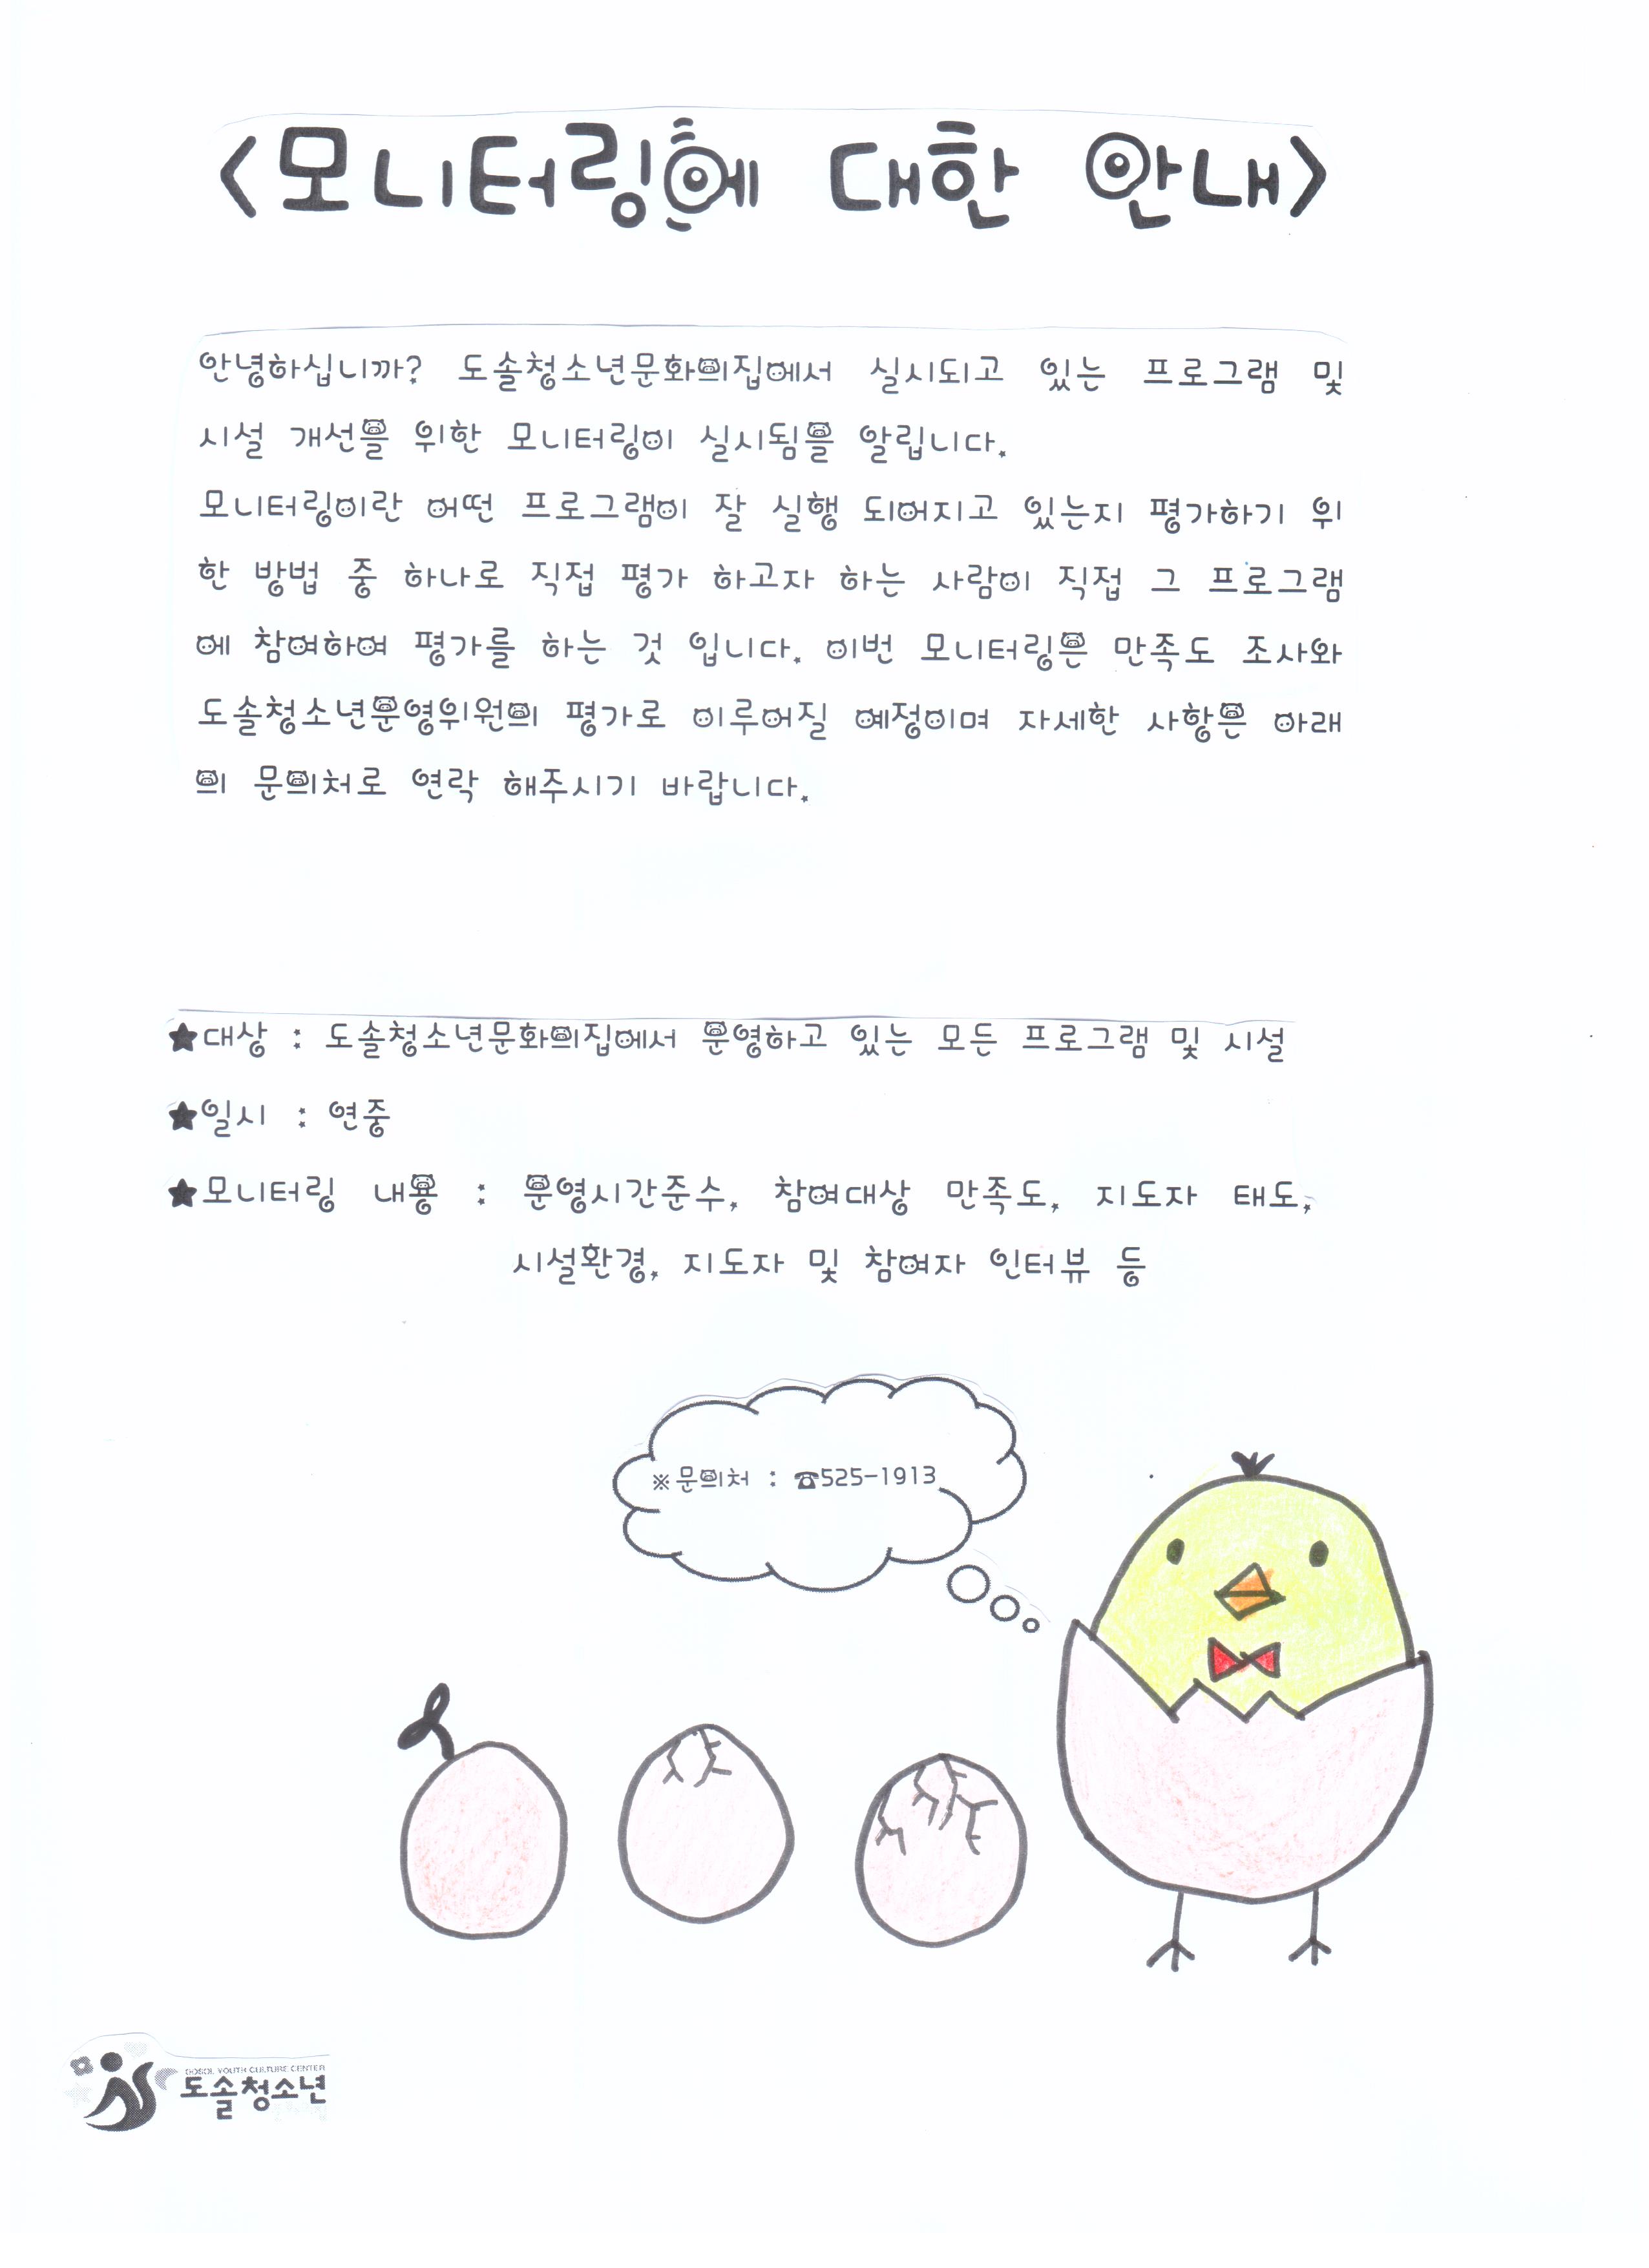 <모니터링에 대한 안내>
안녕하십니까? 도솔청소년문화의집에서 실시되고 있는 프로그램 및
시설 개선을 위한 모니터링이 실시됨을 알립니다.
모니터링이란 어떤 프로그램이 잘 실행 되어지고 있는지 평가하기 위
한 방법 중 하나로 직접 평가 하고자 하는 사람이 직접 그 프로그램
에 참여하여 평가를 하는 것 입니다. 이번 모니터링은 만족도 조사와
도솔청소년운영위원의 평가로 이루어질 예정이며 자세한 사항은 아래
의 문의처로 연락 해주시기 바랍니다.
★대상 : 도솔청소년문화의집에서 운영하고 있는 모든 프로그램 및 시설
★일시 : 연중
★모니터링 내용 : 운영시간준수, 참여대상 만족도, 지도자 태도,
시설환경, 지도자 및 참여자 인터뷰 등
※문의처 : ☎525-1913
DOSOL YOUTH CULTURE CENTER
도솔청소년